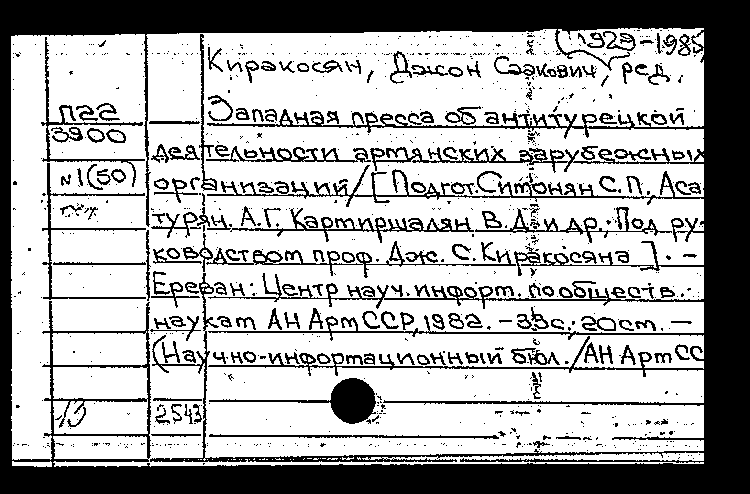 (1929-1985)
Киракосян, Джон Саакович, ред.
Западная пресса об антитурецкой
3900
деятельности армянских зарубежных
N1(50)
организаций/[Подгот. Симонян С.П., Аса-
турян А.Г., Картиршалян В.Д. и др.; Под ру-
ководством проф. Дж. С. Киракосяна]. -
Ереван: Центр науч. информ. по обществ.
наукам АН АрмССР, 1982. - 33с.; 20см. -
(Научно-информационный бюл./АН АрмСС
13
2543